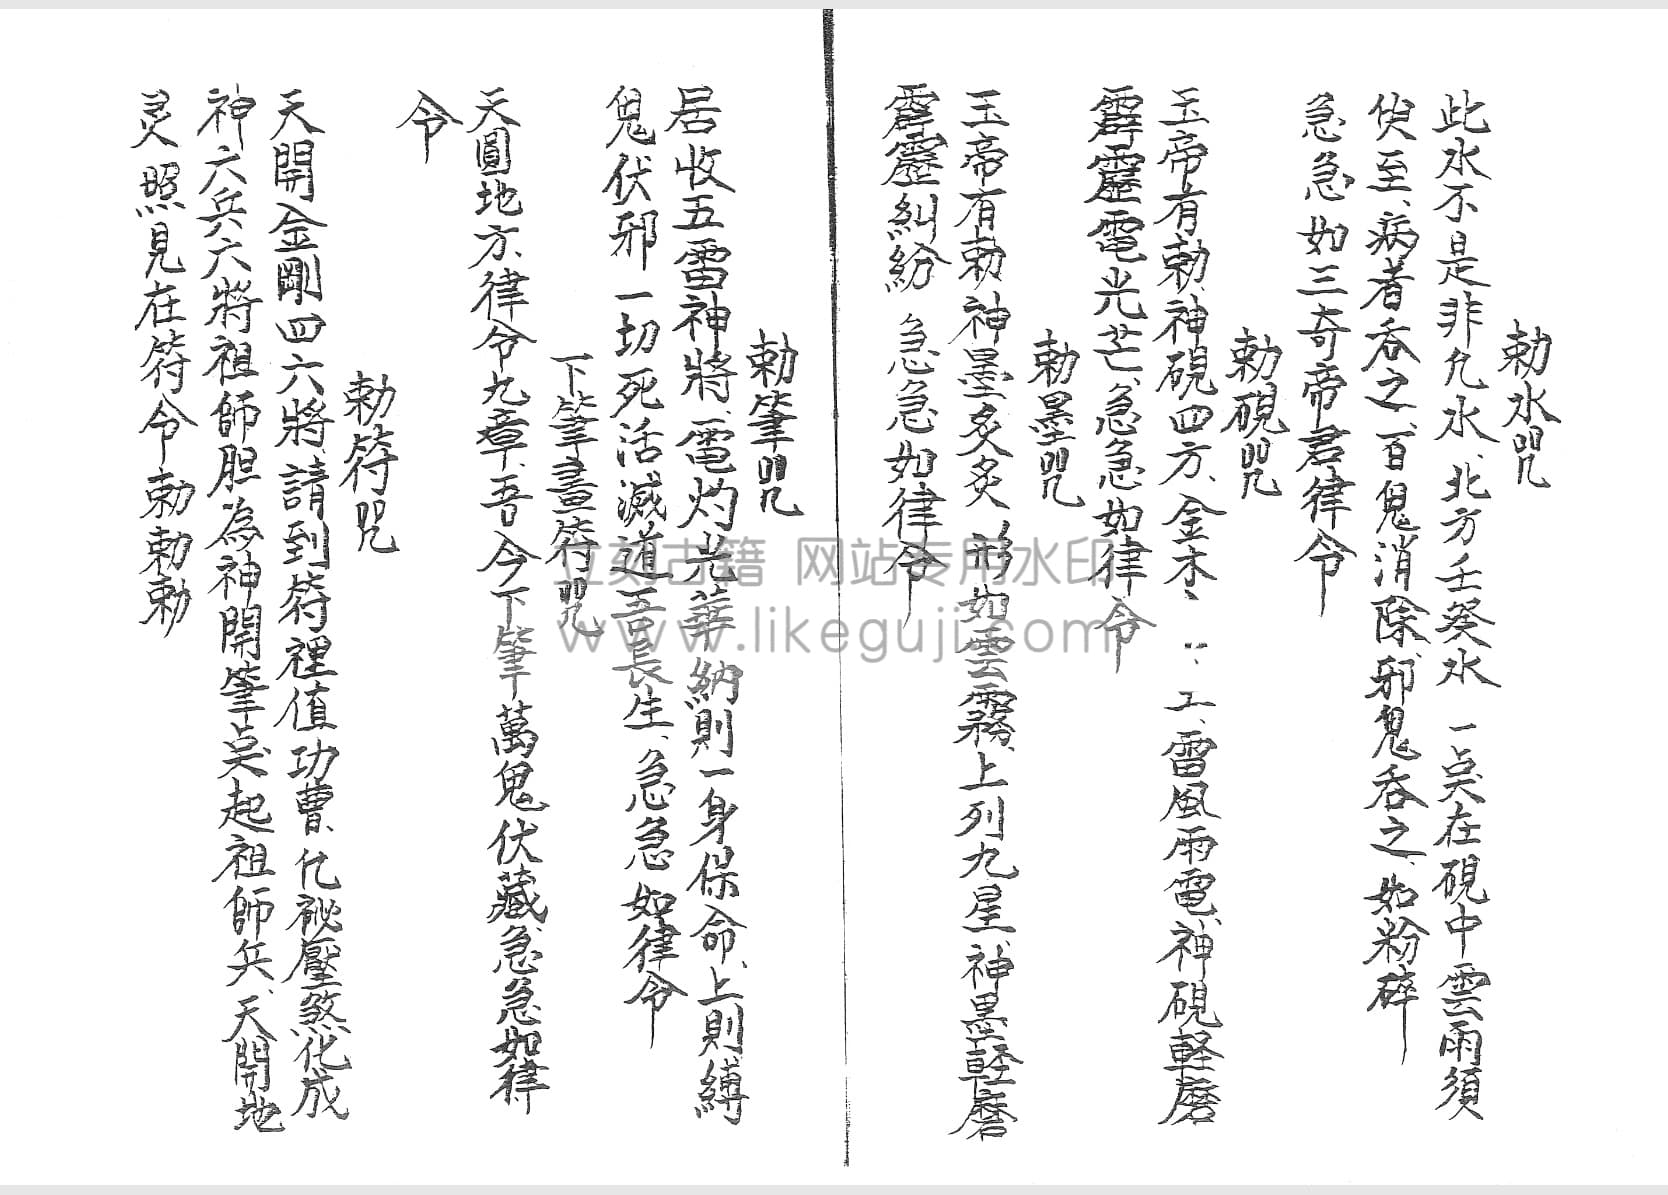 勅水咒
此水不是非凢水、北方壬癸水 一点在硯中雲雨須
臾至、病者吞之、百鬼消除、邪鬼吞之、如粉碎
急急如三奇帝君律令
勅硯咒
玉帝有勅、神硯四方、金木、雷風雨電、神硯軽磨
霹靂電光芒、急急如律令
勅墨咒
玉帝有勅神墨炙炙 形如雲霧、上列九星、神墨軽磨
霹靂糾紛 急急如律令
勅筆咒
居收五雷神將、電灼光華 納則一身保命、上則縛
鬼伏邪 一切死活滅道吾長生、急急如律令
下筆畫符咒
天圓地方、律令九章、吾今下筆 萬鬼伏藏、急急如律
令
勅符咒
天開金剛四六將、請到符裡值功曹、化祕壓煞化成
神六兵六將祖師胆為神開筆点起祖師兵、天開地
灵照見在符令勅勅勅
立刻古籍 网站专用水印
www.likeguji.com